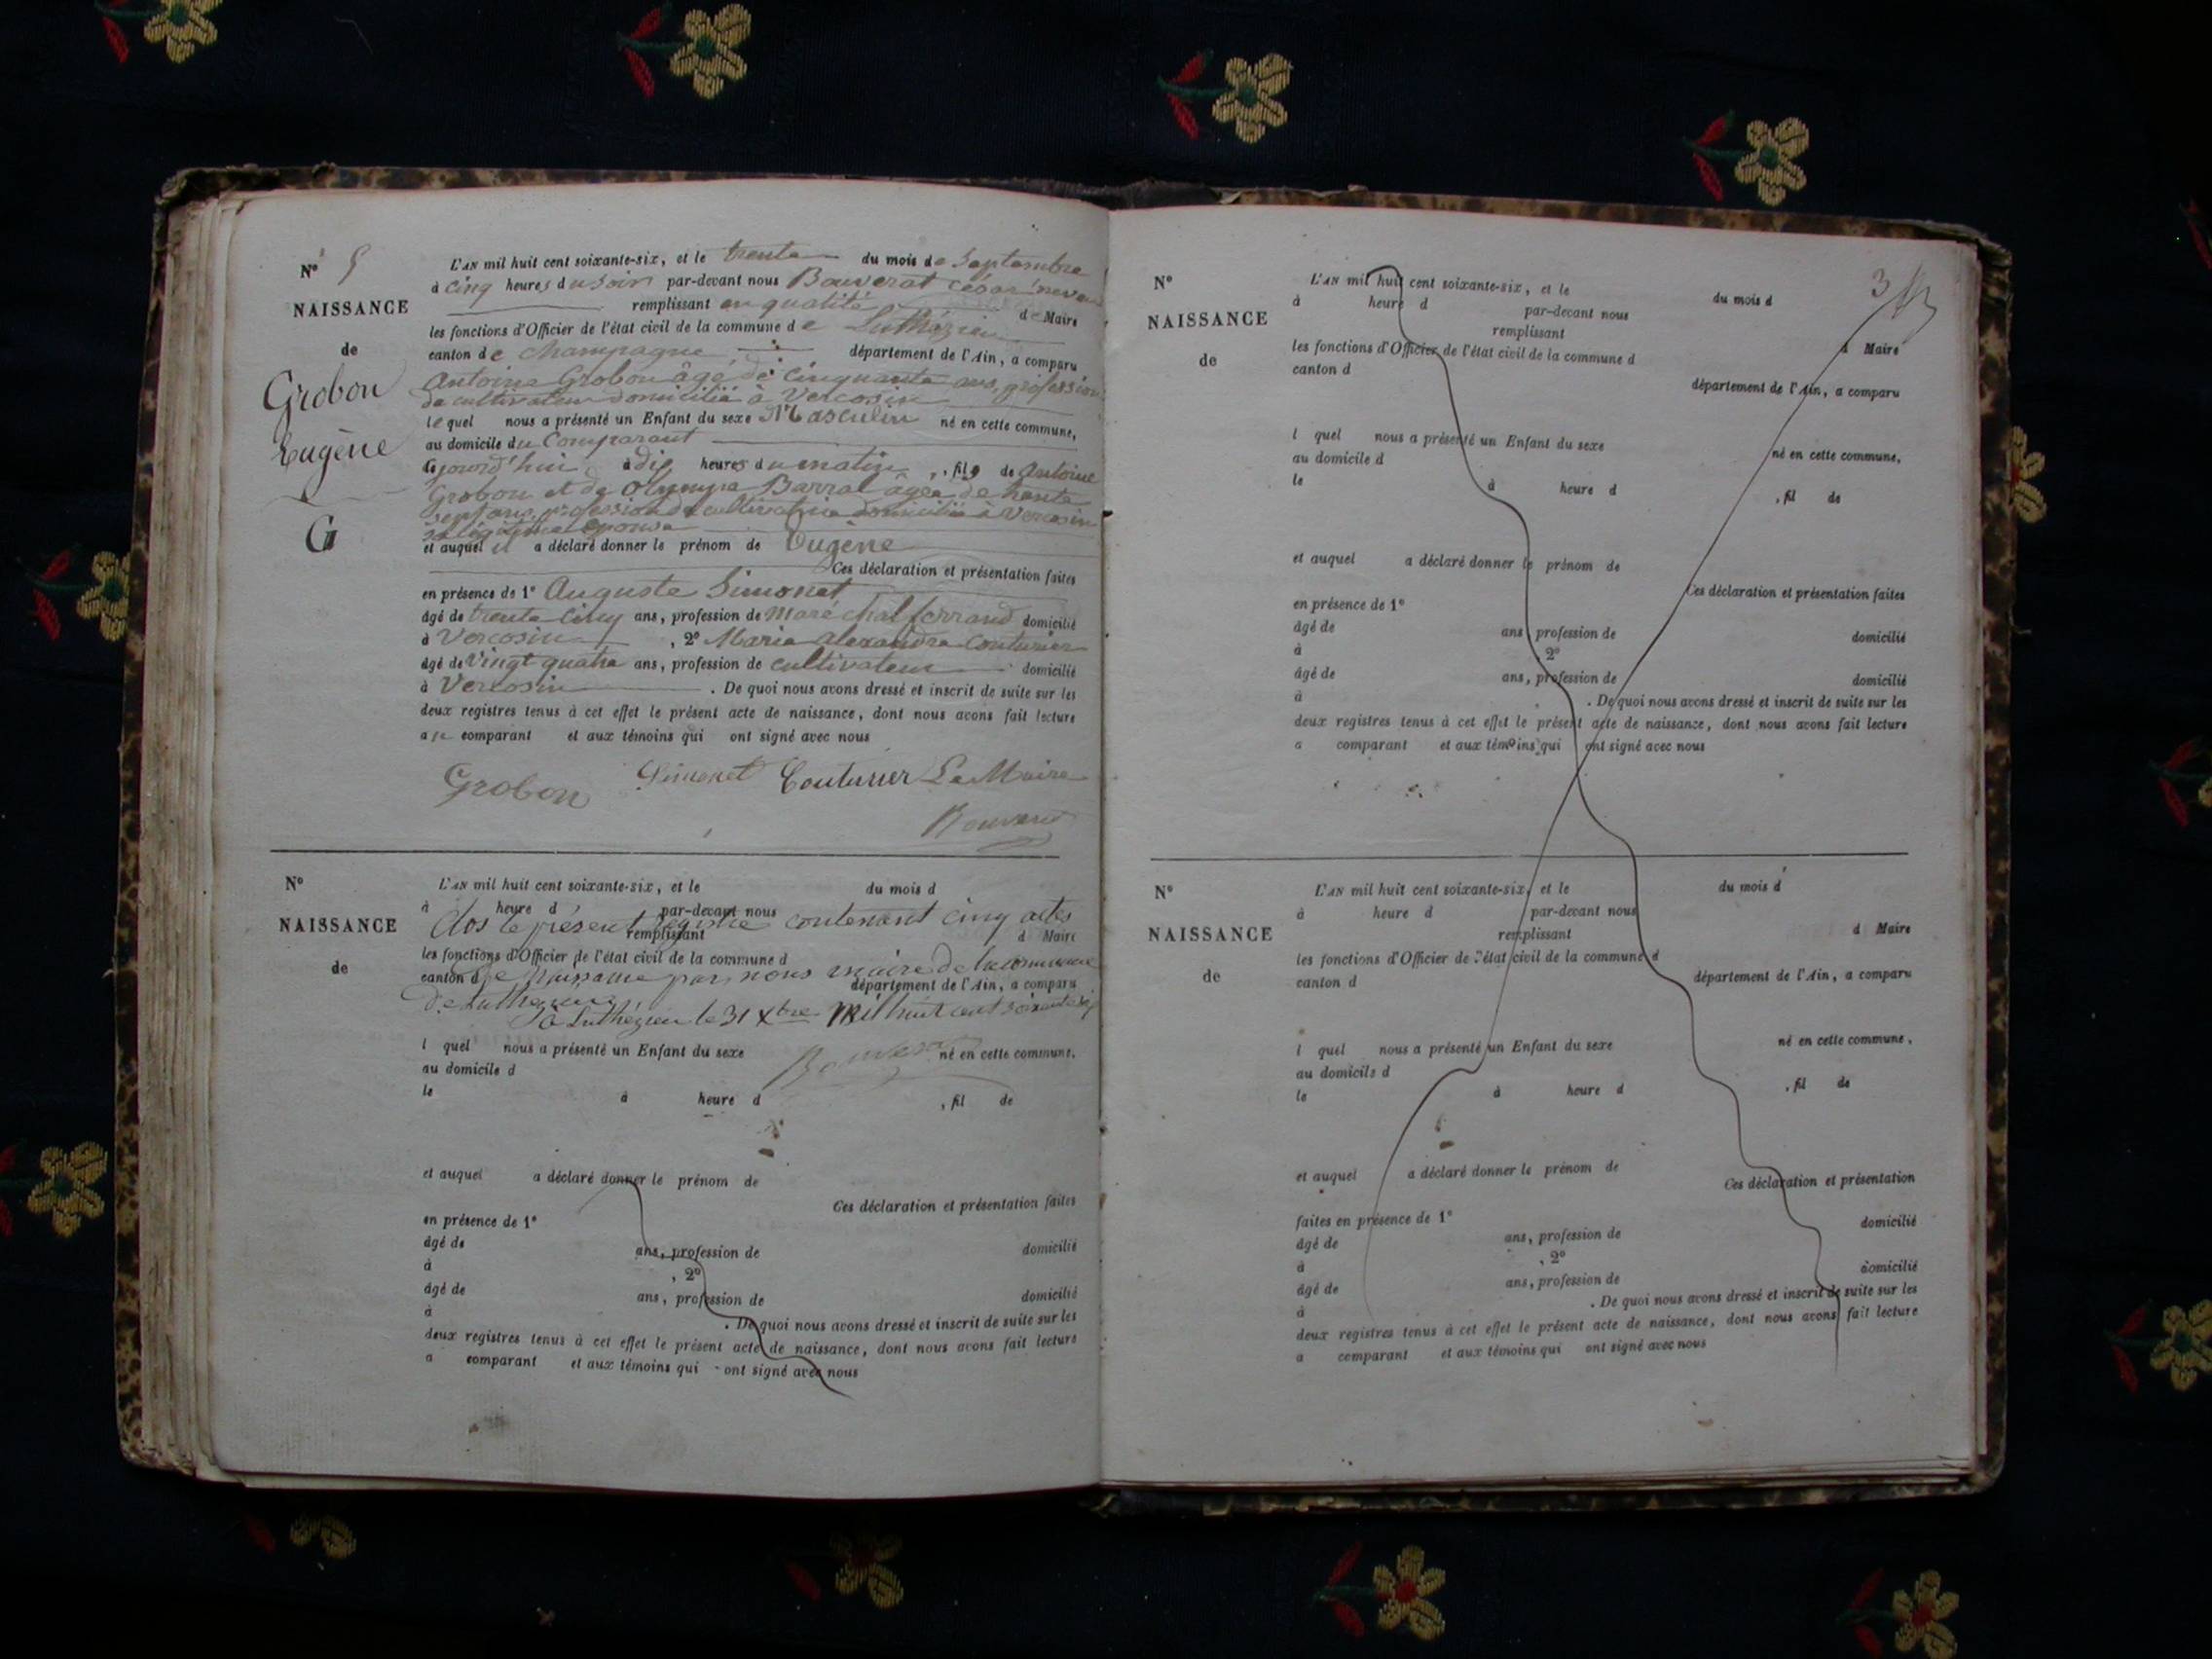 N° 5
NAISSANCE
de
Grobon
Eugène
G
L'AN mil huit cent soixante-six, et le trente du mois de Septembre
à cinq heures du soir par-devant nous Bouverat césar neveu
remplissant en qualité de Maire
les fonctions d'Officier de l'état civil de la commune de Luthézieu
canton de Champagne département de l'Ain, a comparu
Antoine Grobon âgé de cinquante ans, profession
de cultivateur domicilié à Vercosin
lequel nous a présenté un Enfant du sexe Masculin né en cette commune,
au domicile du Comparant
à dix heures du matin, fils de Antoine
Grobon et de Olympe Barral âgée de trente
sept ans, profession de cultivatrice domiciliée à Vercosin
sa légitime épouse
et auquel il a déclaré donner le prénom de Eugène
Ces déclaration et présentation faites
en présence de 1° Auguste Simonet
âgé de trente cinq ans, profession de maréchal ferrand domicilié
à Vercosin, 2° Marie alexandre Couturier
âgé de Vingt quatre ans, profession de cultivateur domicilié
à Vercosin. De quoi nous avons dressé et inscrit de suite sur les
deux registres tenus à cet effet le présent acte de naissance, dont nous avons fait lecture
au comparant et aux témoins qui ont signé avec nous
Grobon Simonet Couturier Le Maire
N°
NAISSANCE
de
L'AN mil huit cent soixante-six, et le du mois d
à heure d par-devant nous
Clos le présent registre contenant cinq actes
remplissant d Maire
les fonctions d'Officier de l'état civil de la commune d
de Naissance par nous maire de la commune
canton d département de l'Ain, a comparu
de Luthézieu
à Luthézieu le 31 Xbre mil huit cent soixante six
l quel nous a présenté un Enfant du sexe né en cette commune,
au domicile d
le à heure d , fil de
et auquel a déclaré donner le prénom de
Ces déclaration et présentation faites
en présence de 1°
âgé de ans, profession de domicilié
à , 2°
âgé de ans, profession de domicilié
à . De quoi nous avons dressé et inscrit de suite sur les
deux registres tenus à cet effet le présent acte de naissance, dont nous avons fait lecture
a comparant et aux témoins qui ont signé avec nous
3
N°
NAISSANCE
de
L'AN mil huit cent soixante-six, et le du mois d
à heure d par-devant nous
remplissant d Maire
les fonctions d'Officier de l'état civil de la commune d
canton d département de l'Ain, a comparu
l quel nous a présenté un Enfant du sexe né en cette commune,
au domicile d
le à heure d , fil de
et auquel a déclaré donner le prénom de
Ces déclaration et présentation faites
en présence de 1°
âgé de ans, profession de domicilié
à 2°
âgé de ans, profession de domicilié
à . De quoi nous avons dressé et inscrit de suite sur les
deux registres tenus à cet effet le présent acte de naissance, dont nous avons fait lecture
a comparant et aux témoins qui ont signé avec nous
N°
NAISSANCE
de
L'AN mil huit cent soixante-six, et le du mois d
à heure d par-devant nous
remplissant d Maire
les fonctions d'Officier de l'état civil de la commune d
canton d département de l'Ain, a comparu
l quel nous a présenté un Enfant du sexe né en cette commune,
au domicile d
le à heure d , fil de
et auquel a déclaré donner le prénom de
Ces déclaration et présentation
faites en présence de 1° domicilié
âgé de ans, profession de
à , 2° domicilié
âgé de ans, profession de
à . De quoi nous avons dressé et inscrit de suite sur les
deux registres tenus à cet effet le présent acte de naissance, dont nous avons fait lecture
a comparant et aux témoins qui ont signé avec nous